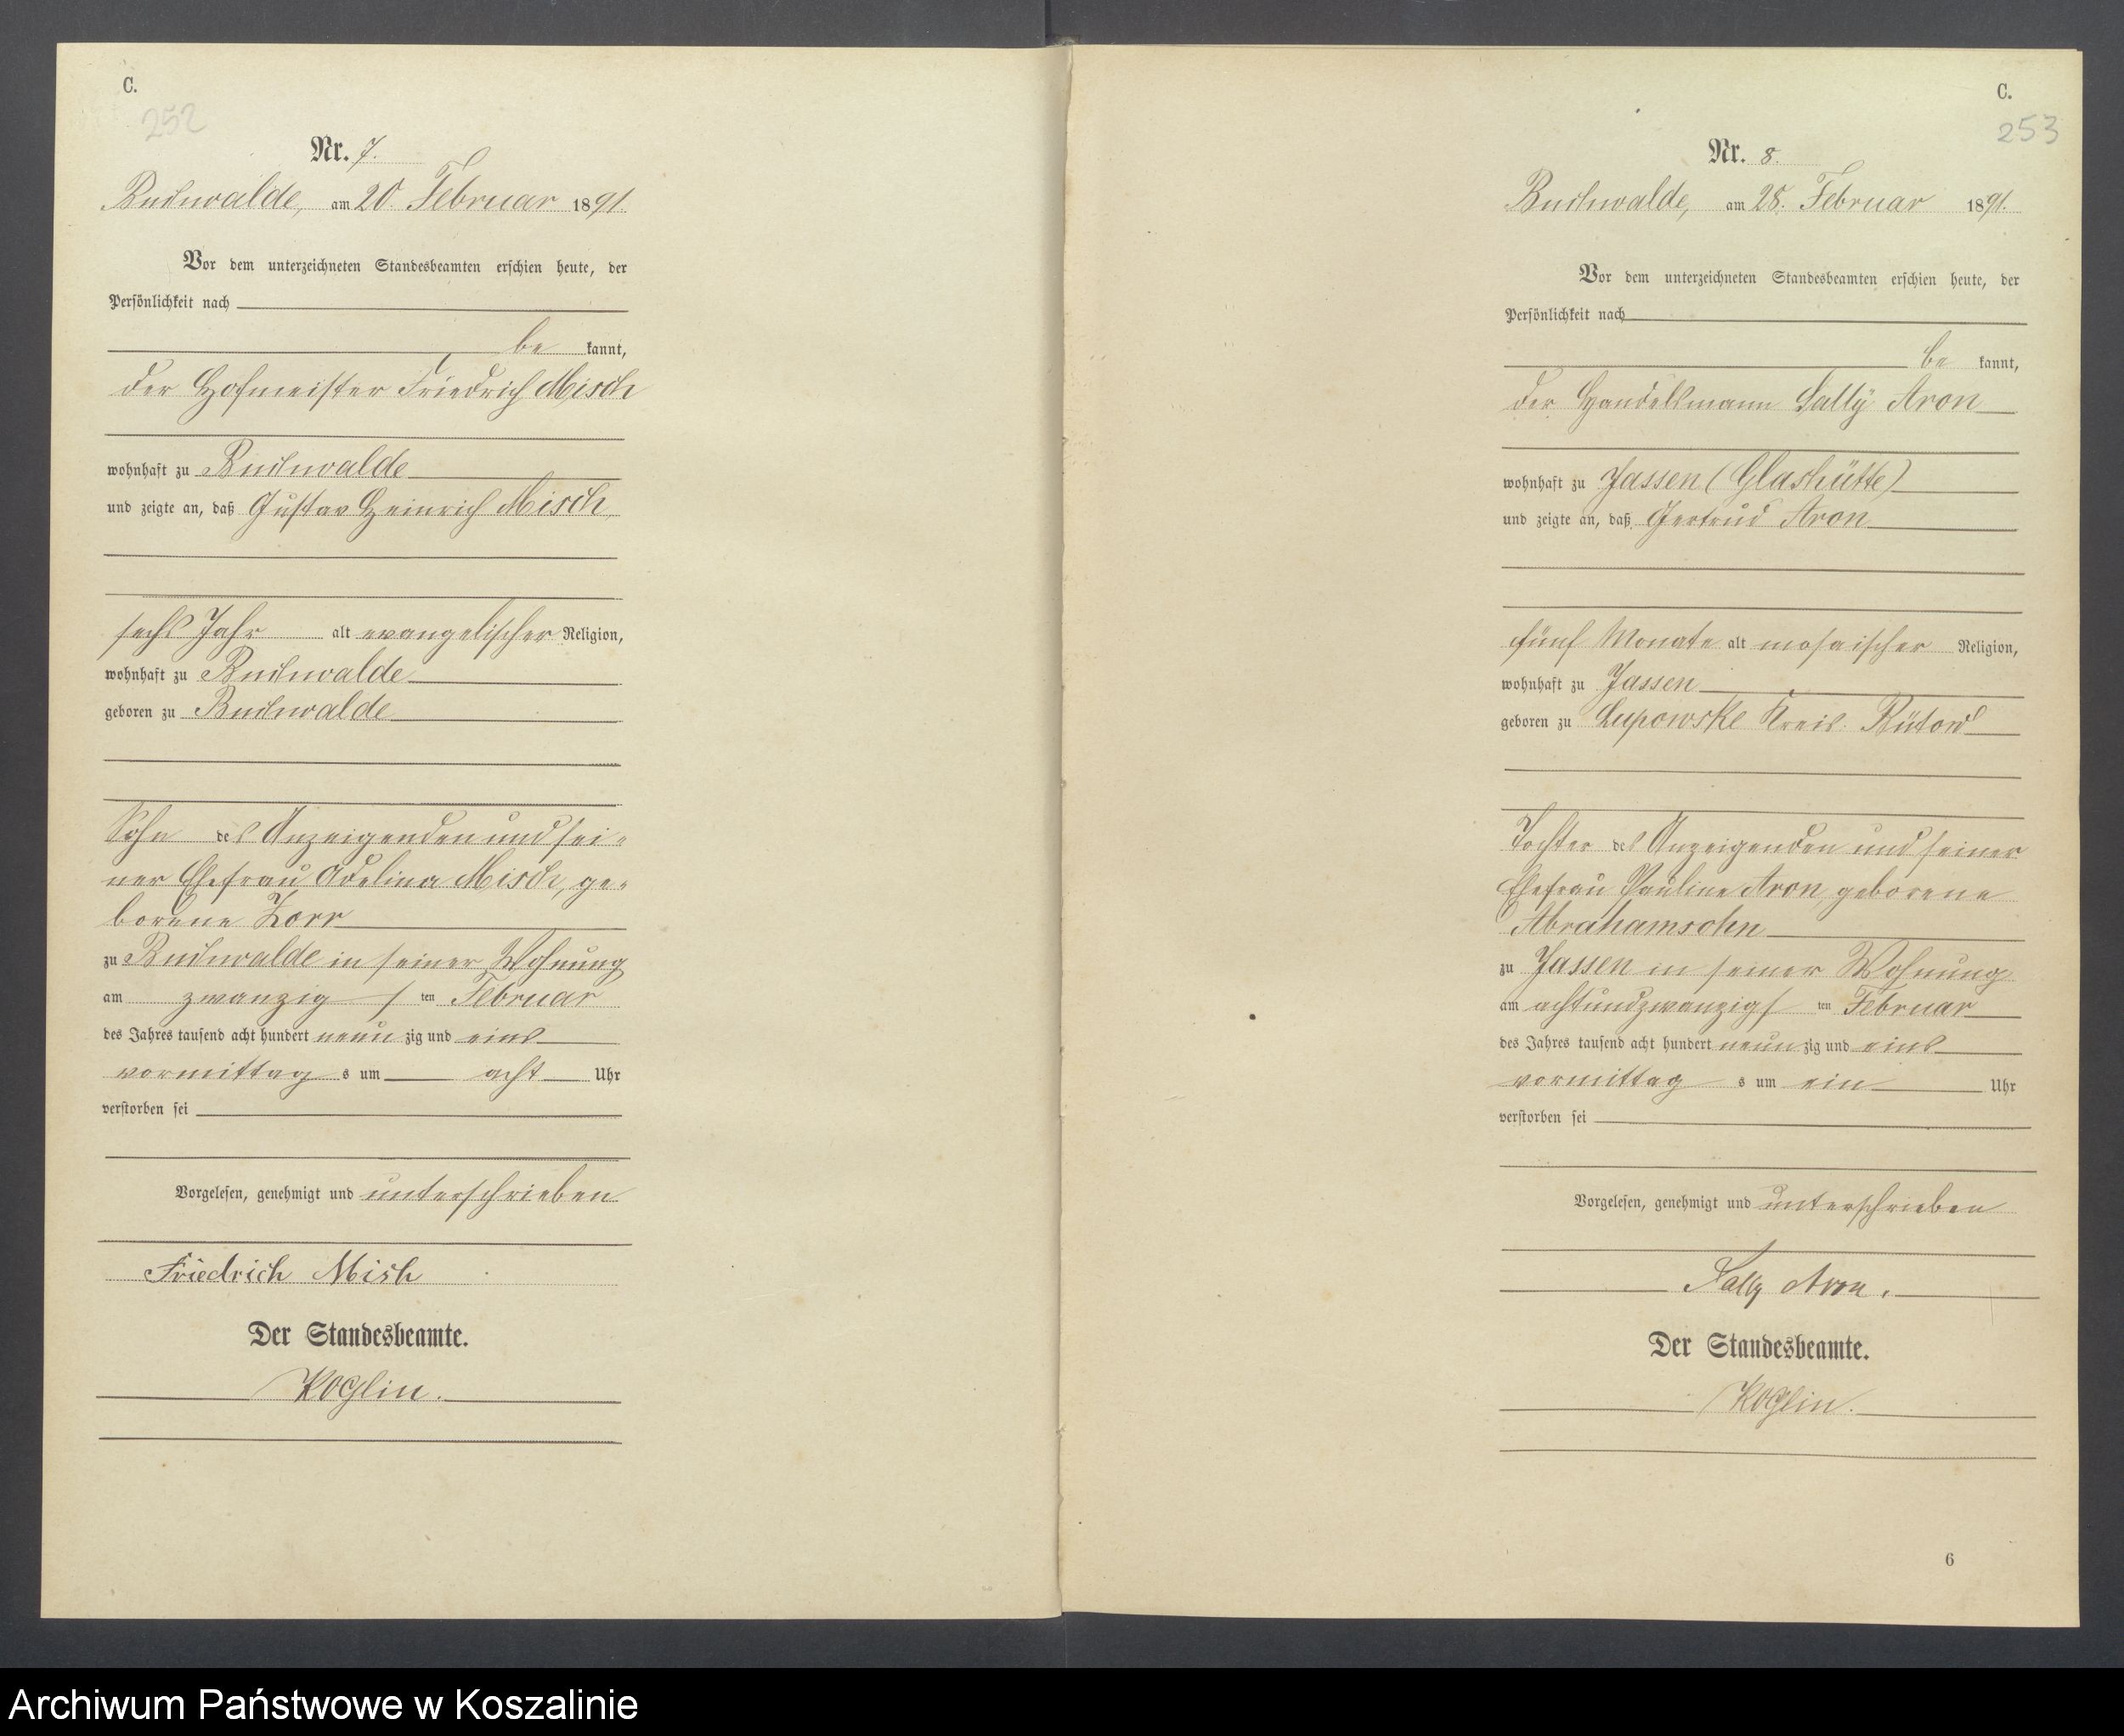 C.
252
Nr. 7.
Buchwalde, am 20. Februar 1891.
Vor dem unterzeichneten Standesbeamten erschien heute, der
Persönlichkeit nach
be kannt,
der Hofmeister Friedrich Misch
wohnhaft zu Buchwalde
und zeigte an, daß Gustav Heinrich Misch,
sechs Jahr alt evangelischer Religion,
wohnhaft zu Buchwalde
geboren zu Buchwalde
Sohn des Anzeigenden und sei-
ner Ehefrau Adelina Misch, ge-
borene Zorr
zu Buchwalde in seiner Wohnung
am zwanzig s ten Februar
des Jahres tausend acht hundert neun zig und eins
vormittag s um acht Uhr
verstorben sei
Vorgelesen, genehmigt und unterschrieben
Friedrich Mish
Der Standesbeamte.
Koglin.
C.
253
Nr. 8.
Buchwalde, am 28. Februar 1891.
Vor dem unterzeichneten Standesbeamten erschien heute, der
Persönlichkeit nach
be kannt,
der Handelsmann Sally Aron
wohnhaft zu Jassen (Glashütte)
und zeigte an, daß Gertrud Aron
fünf Monate alt mosaischer Religion,
wohnhaft zu Jassen
geboren zu Lupowske Kreis Bütow
Tochter des Anzeigenden und seiner
Ehefrau Pauline Aron, geborene
Abrahamsohn
zu Jassen in seiner Wohnung
am achtundzwanzigs ten Februar
des Jahres tausend acht hundert neun zig und eins
vormittag s um ein Uhr
verstorben sei
Vorgelesen, genehmigt und unterschrieben
Sally Aron.
Der Standesbeamte.
Koglin.
6
Archiwum Państwowe w Koszalinie